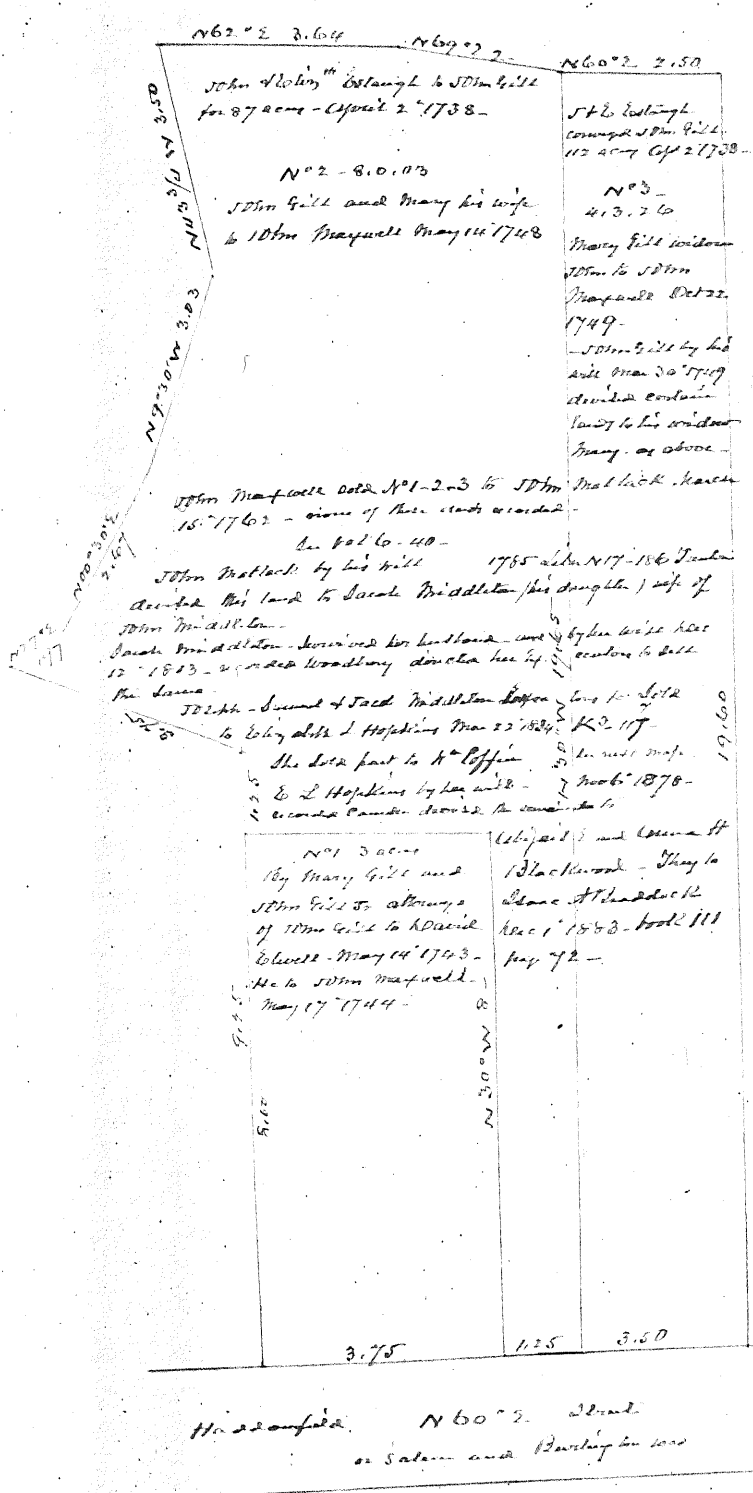 N62°E 3.64
N69°E 2
N60°E 2.50
John & Eliz th Estaugh to John Gill
for 87 acres - April 2d 1738 -
No 2 - 8.0.03
John Gill and Mary his wife
to John Maxwell May 14th 1748
J & E Estaugh
conveyed John Gill
112 acres Apl 2 1738 -
No 3 -
4.3.26
Mary Gill widow
John to John
Maxwell Oct 22
1749 -
- John Gill by his
will Mar 30th 1749
devised certain
land to his widow
Mary as above -
3.50
3.03
John Maxwell sold No 1-2-3 to John Matlack March
15th 1762 - none of these deeds recorded -
See Vol 6 - 40 -
John Matlack by his will 1765 Liber No 17 - 186
devised this land to Sarah Middleton (his daughter) wife of
John Middleton -
Sarah Middleton survived her husband - and by her will
12th 1813 - recorded Woodbury directed her Executors to sell
the same
Joseph - Samuel & Jacob Middleton sold
to Elizabeth L Hopkins Mar 22d 1824 K3 - 117 -
She sold part to Wm Coffin See next map
E L Hopkins by her will - 1878 -
recorded Camden devised the same to
Abigail and H
Blackwood - They to
Isaac A Braddock
Dec 1st 1883 - book 111
page 72 -
19.60
No 1 3 acres
By Mary Gill and
John Gill Jr attorneys
of John Gill to David
Elwell - May 14th 1743 -
He to John Maxwell -
May 17th 1744 -
N 30°W 8
3.75
1.25
3.50
Haddonfield N 60°E Street
or Salem and Burlington road